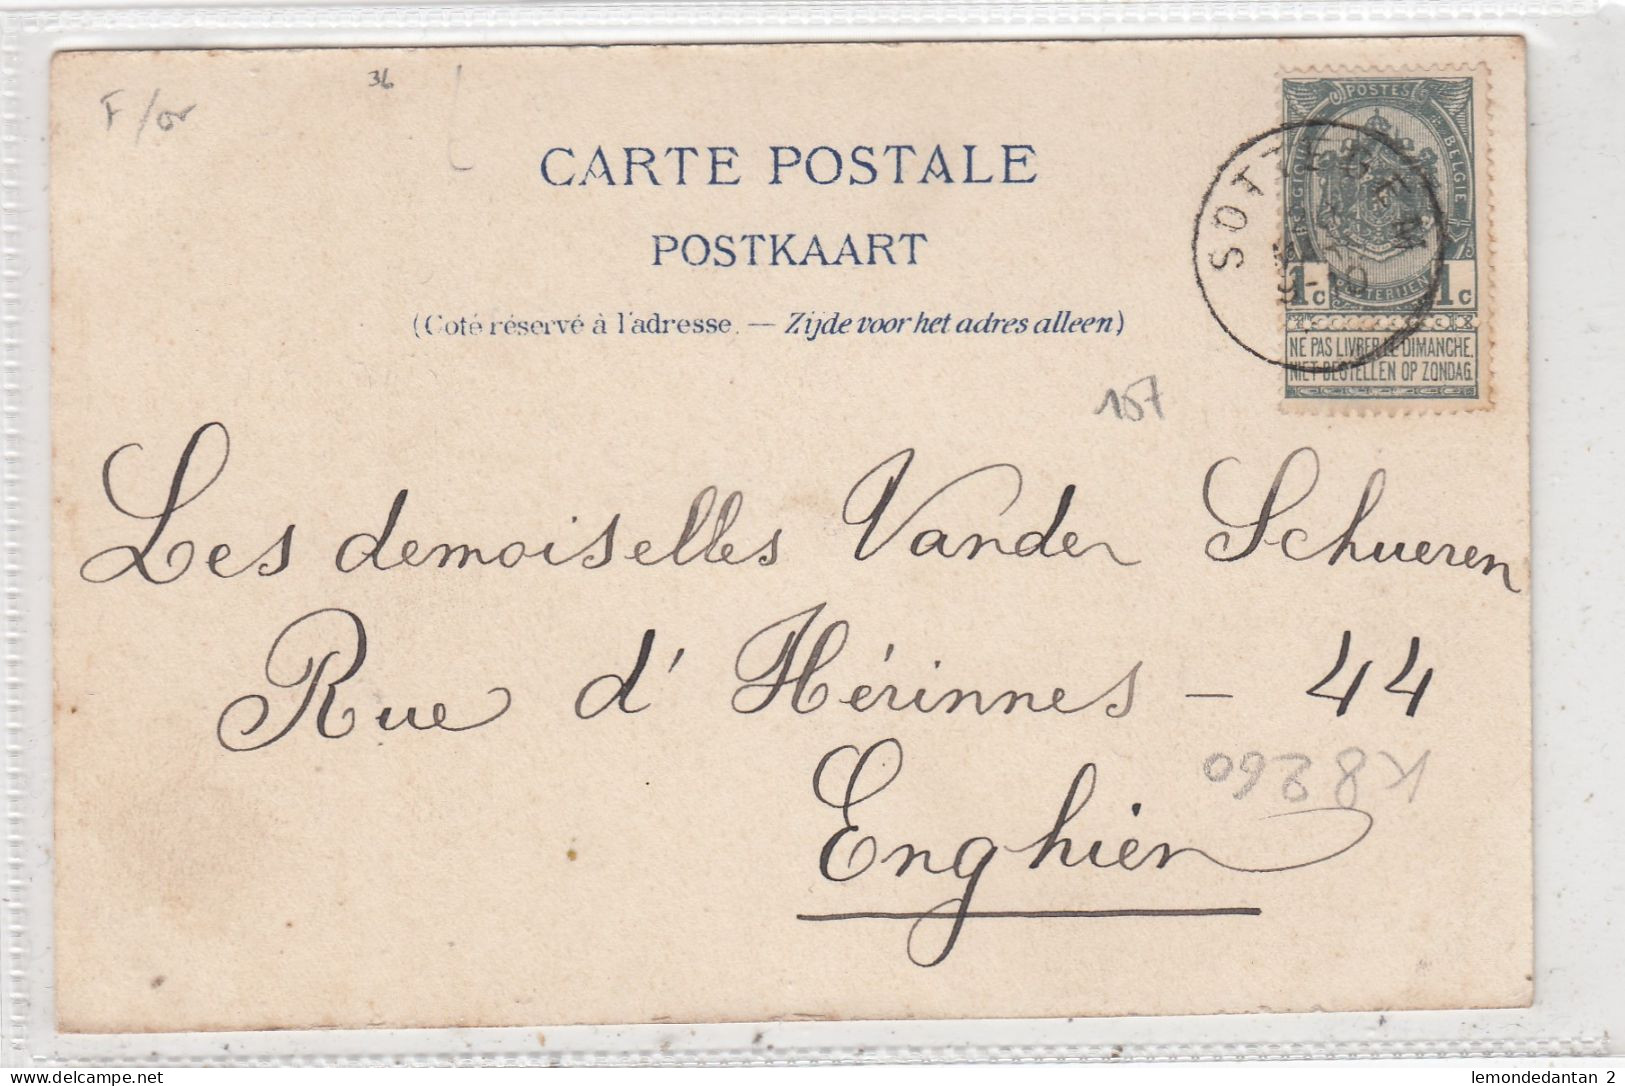 F/or
36
CARTE POSTALE
POSTKAART
(Coté réservé à l'adresse. — Zijde voor het adres alleen)
POSTES
BELGIE
BELGIQUE
POSTERIJEN
1c 1c
NE PAS LIVRER LE DIMANCHE.
NIET BESTELLEN OP ZONDAG.
SOTTEGEM
107
Les demoiselles Vander Schueren
Rue d'Hérinnes - 44
K8260
Enghien
lemondedantan 2